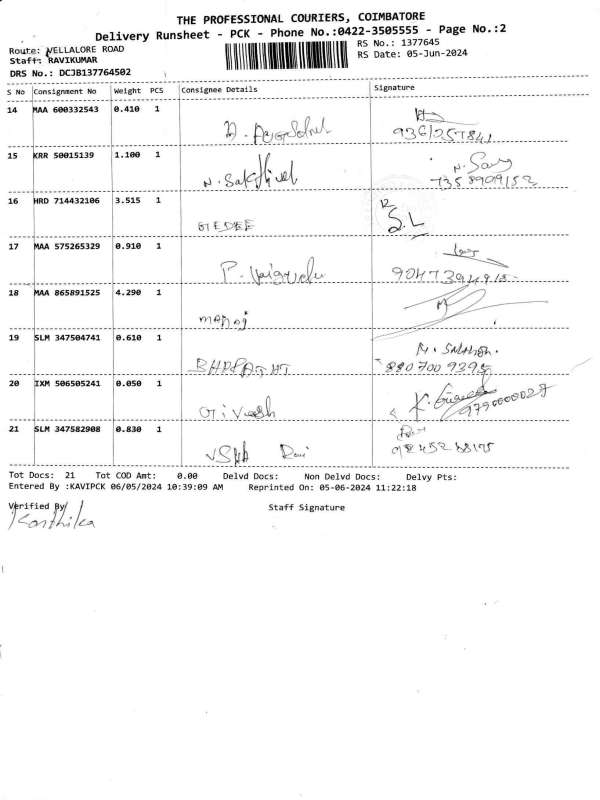 THE PROFESSIONAL COURIERS, COIMBATORE
Delivery Runsheet - PCK - Phone No.:0422-3505555 - Page No.:2
Route: VELLALORE ROAD
RS No.: 1377645
Staff: RAVIKUMAR
RS Date: 05-Jun-2024
DRS No.: DCJB137764502
S No Consignment No Weight PCS Consignee Details Signature
14 MAA 600332543 0.410 1
15 KRR 50015139 1.100 1
N. Sakthivel
7358909152
16 HRD 714432106 3.515 1
S.L
17 MAA 575265329 0.910 1
18 MAA 865891525 4.290 1
manoj
19 SLM 347504741 0.610 1
20 IXM 506505241 0.050 1
21 SLM 347582908 0.830 1
Tot Docs: 21 Tot COD Amt: 0.00 Delvd Docs: Non Delvd Docs: Delvy Pts:
Entered By :KAVIPCK 06/05/2024 10:39:09 AM Reprinted On: 05-06-2024 11:22:18
Verified By Staff Signature
Karthika